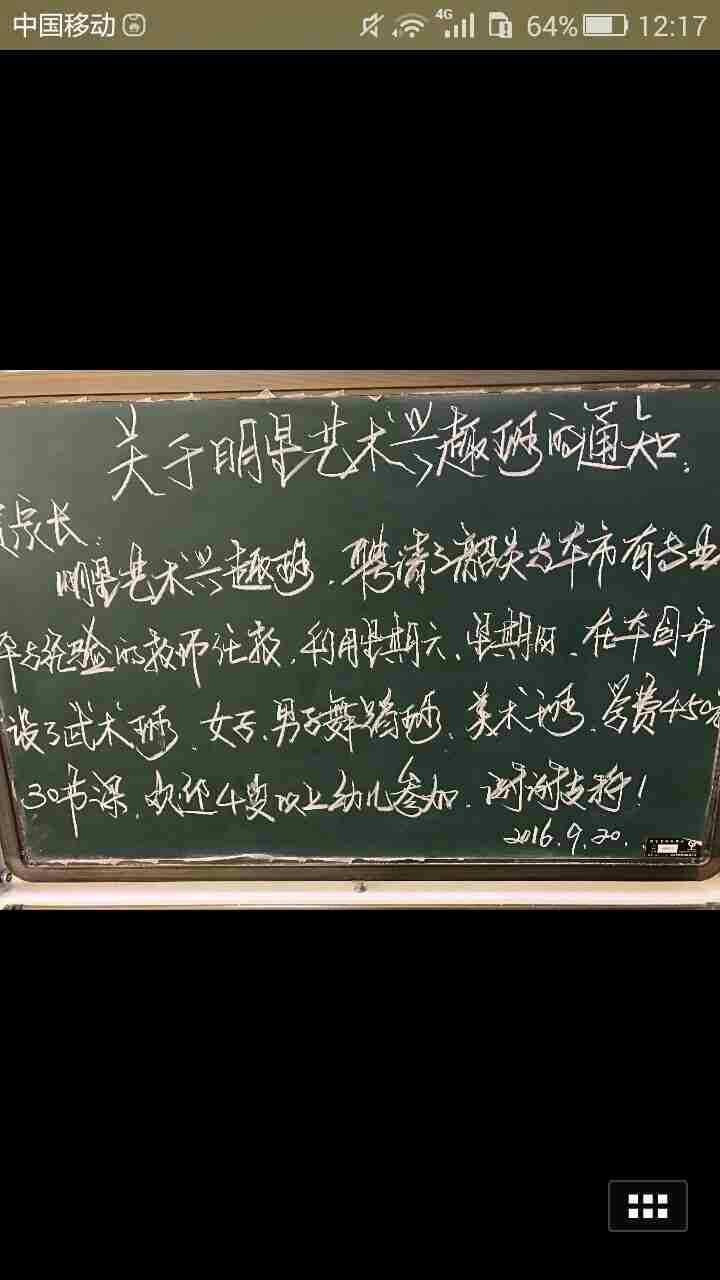 中国移动 4G 64% 12:17
关于明星艺术兴趣班的通知:
家长:
明星艺术兴趣班,聘请了韶关与本市有专业
经验的教师任教,利用星期六、星期日,在本园开
设了武术班、女子、男子舞蹈班、美术班,学费450
30节课,欢迎4岁以上幼儿参加,谢谢支持!
2016.9.20.